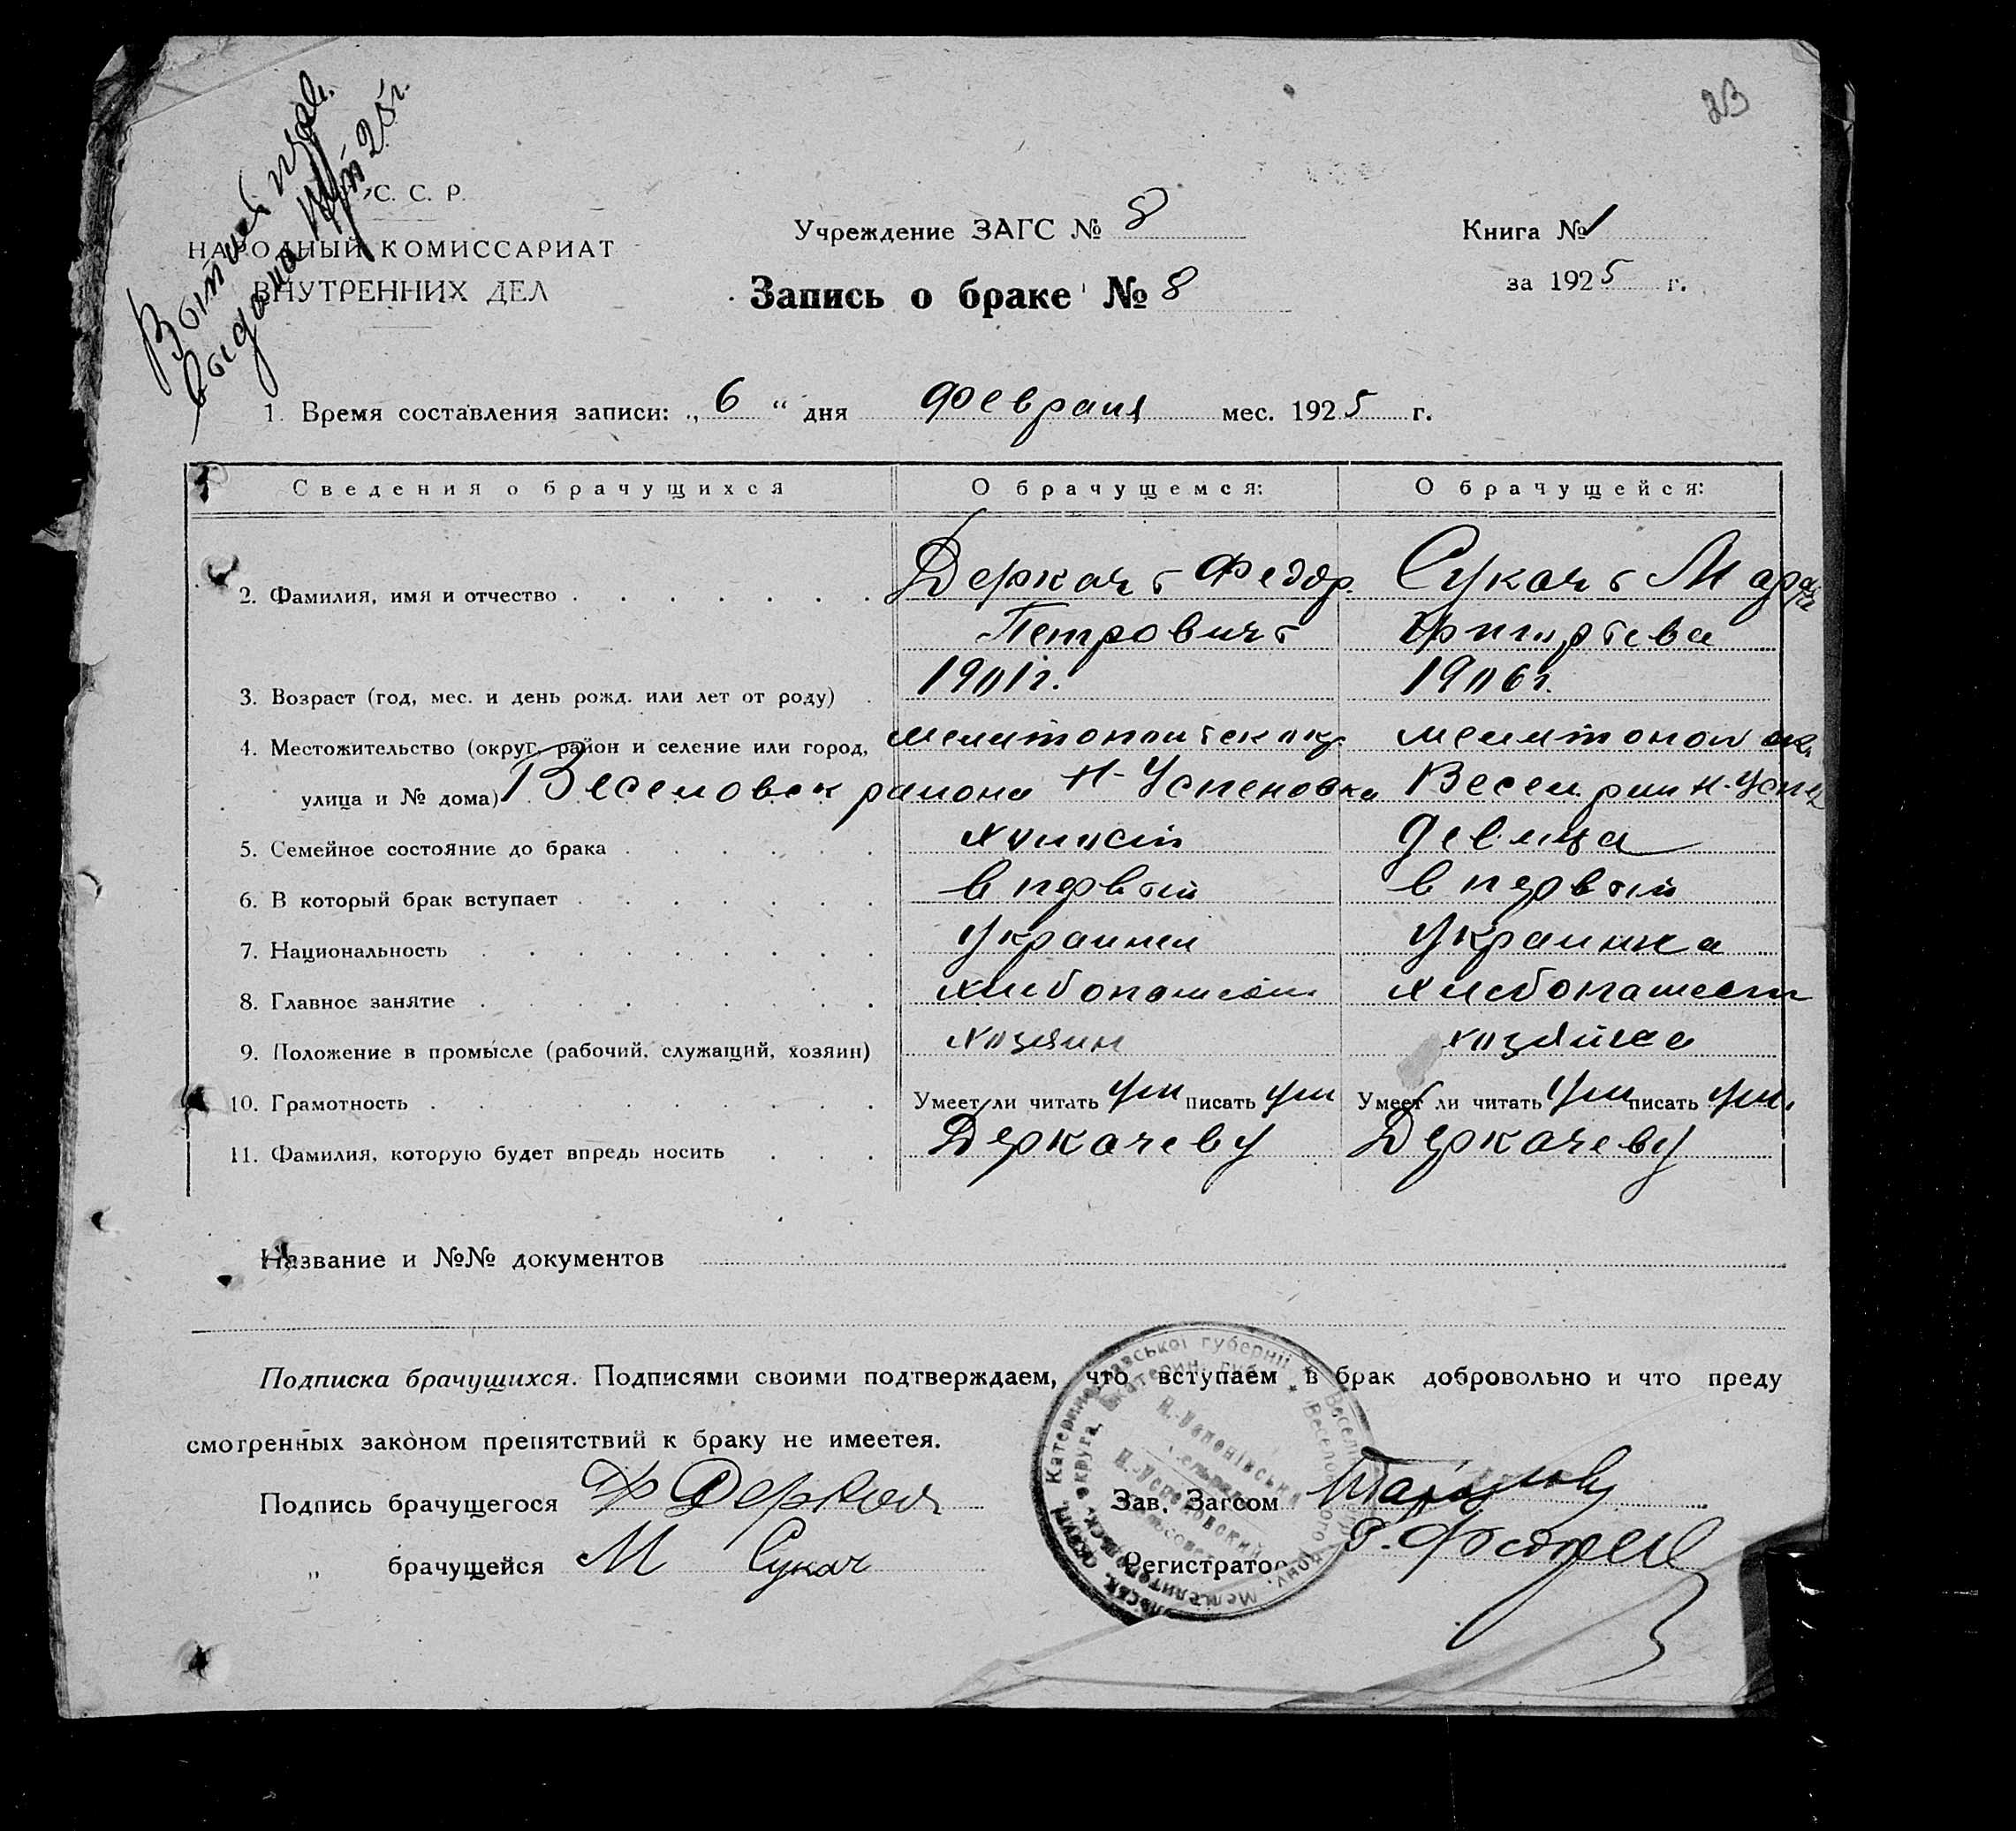 23
Выпись
выдана 25 г.
С. С. Р.
НАРОДНЫЙ КОМИССАРИАТ
ВНУТРЕННИХ ДЕЛ
Учреждение ЗАГС № 8
Книга № 1
Запись о браке № 8
за 1925 г.
1. Время составления записи: „ 6 “ дня февраля мес. 1925 г.
Сведения о брачущихся О брачущемся: О брачущейся:
2. Фамилия, имя и отчество Деркачъ Федор. Сукачъ Марфа
Петровичъ Григорьева
3. Возраст (год, мес. и день рожд. или лет от роду) 1901г. 1906г.
4. Местожительство (округ, район и селение или город, мелитопольск окр мелитопол ок.
улица и № дома) Веселовск района Н-Успеновка Весел рай Н-Успен
5. Семейное состояние до брака холост девица
6. В который брак вступает в первый в первый
7. Национальность Украинец Украинка
8. Главное занятие хлебопашест хлебопашест
9. Положение в промысле (рабочий, служащий, хозяин) хозяин хозяйка
10. Грамотность Умеет ли читать ум писать ум Умеет ли читать ум писать ум.
11. Фамилия, которую будет впредь носить Деркачеву Деркачеву
Название и №№ документов
Подписка брачущихся. Подписями своими подтверждаем, что вступаем в брак добровольно и что преду
смотренных законом препятствий к браку не имеется.
Подпись брачущегося Ф Деркач
Зав. Загсом
„ брачущейся М Сукач
Регистратор
Н.-Успенівський
Н.-Успеновский